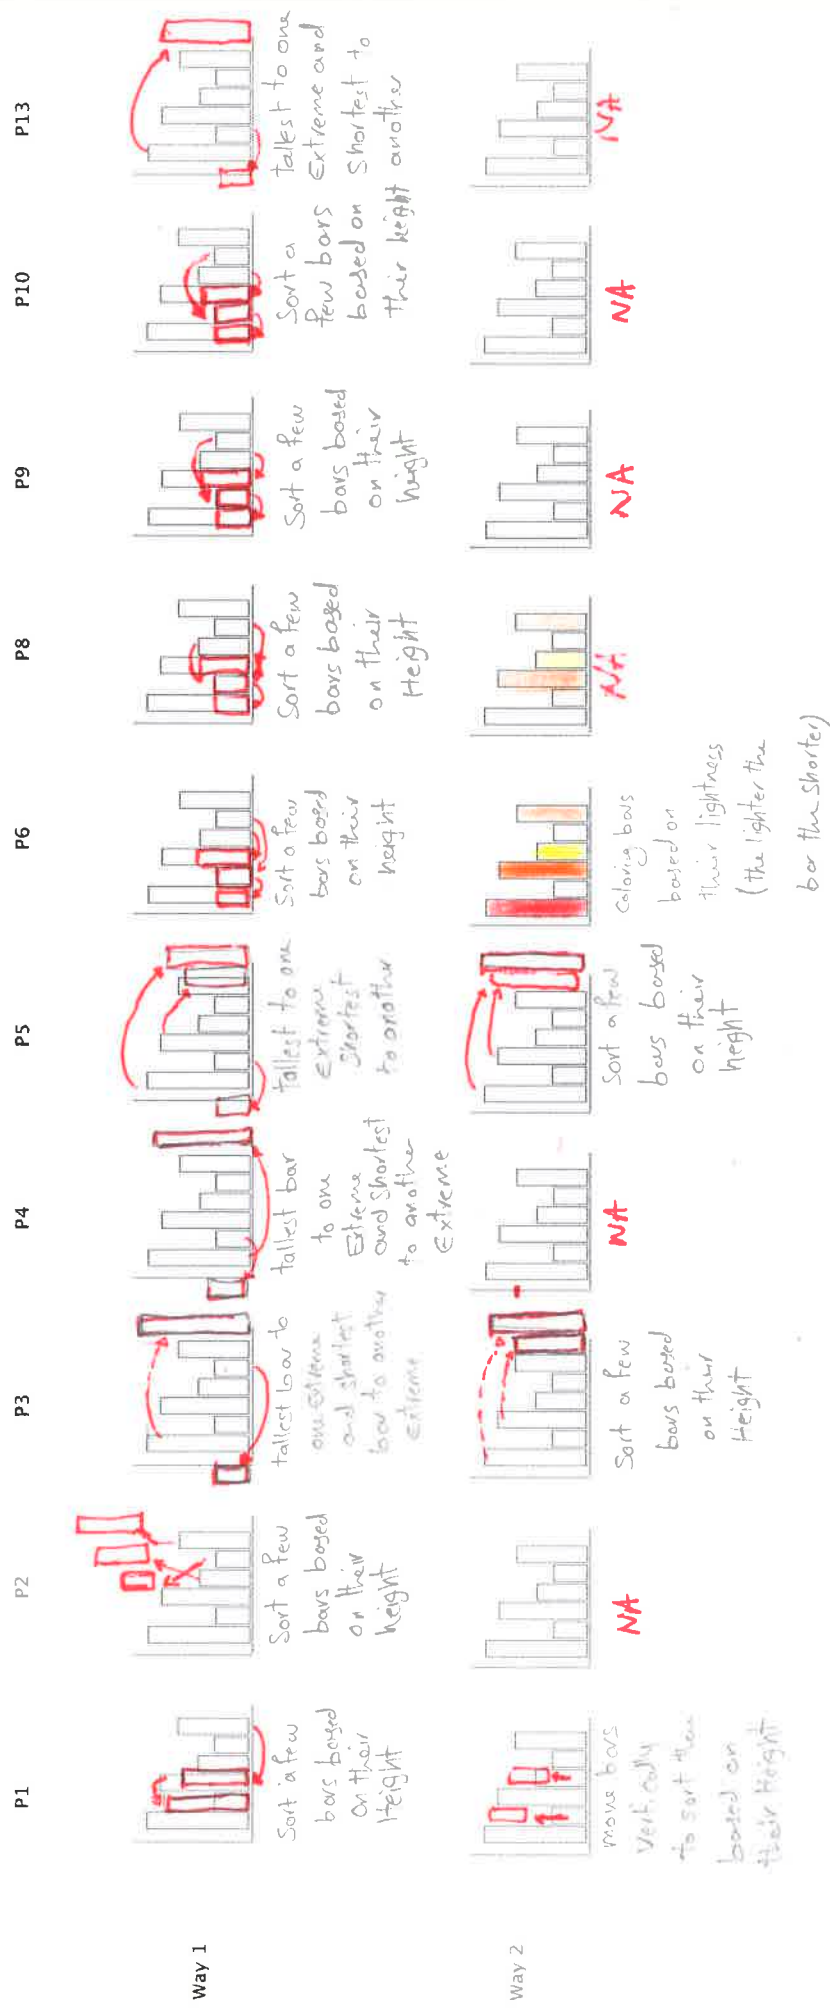 P1
P2
P3
P4
P5
P6
P8
P9
P10
P13
Way 1
Sort a few
bars based
on their
Height
Sort a few
bars based
on their
height
tallest bar to
one extreme
and shortest
bar to another
extreme
tallest bar
to one
Extreme
and shortest
to another
Extreme
tallest to one
extreme
shortest
to another
Sort a few
bars based
on their
height
Sort a few
bars based
on their
Height
Sort a few
bars based
on their
height
Sort a
few bars
based on
their height
tallest to one
Extreme and
shortest to
another
Way 2
move bars
Vertically
to sort them
based on
their height
NA
Sort a few
bars based
on their
Height
NA
Sort a few
bars based
on their
height
Coloring bars
based on
their lightness
(the lighter the
bar the shorter)
NA
NA
NA
NA